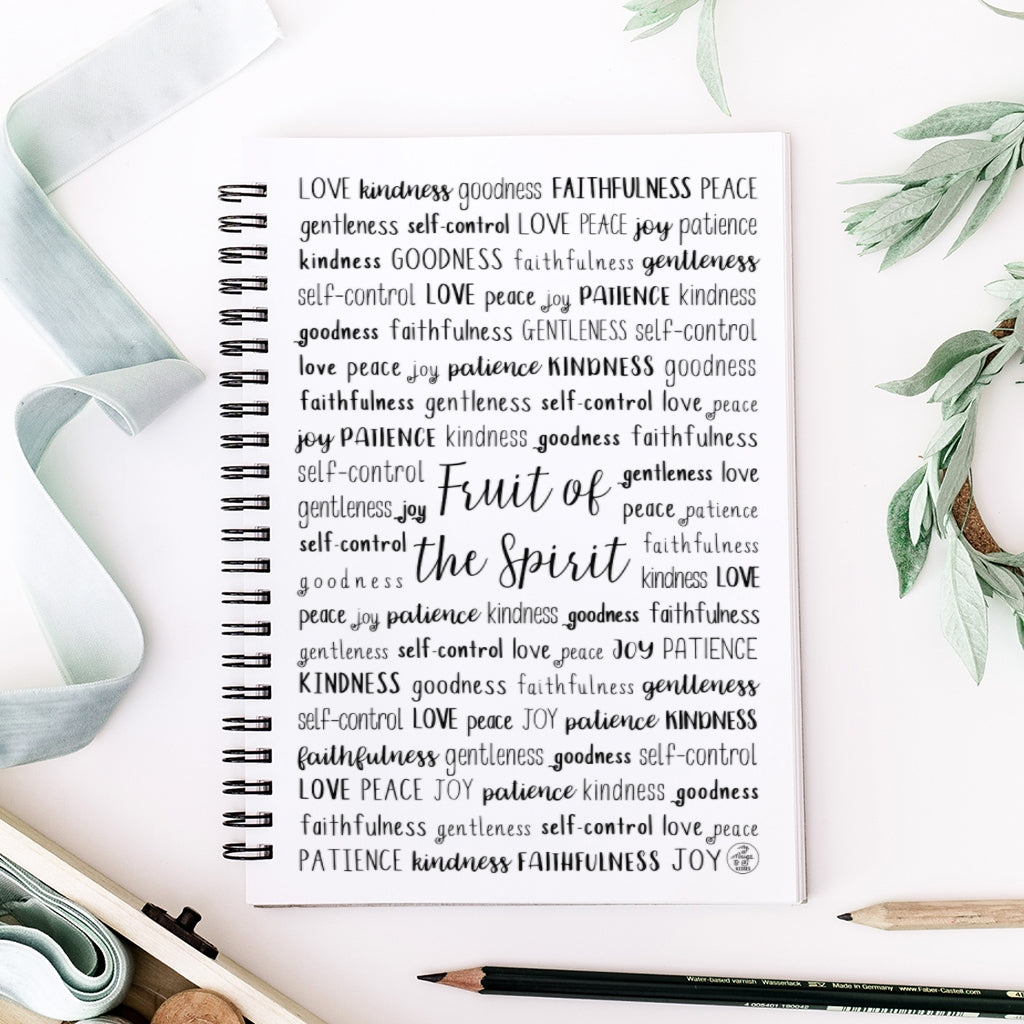 LOVE kindness goodness FAITHFULNESS PEACE
gentleness self-control LOVE PEACE joy patience
kindness GOODNESS faithfulness gentleness
self-control LOVE peace joy PATIENCE kindness
goodness faithfulness GENTLENESS self-control
love peace joy patience KINDNESS goodness
faithfulness gentleness self-control love peace
joy PATIENCE kindness goodness faithfulness
self-control Fruit of gentleness love
gentleness joy peace patience
self-control the Spirit faithfulness
goodness kindness LOVE
peace joy patience kindness goodness faithfulness
gentleness self-control love peace JOY PATIENCE
KINDNESS goodness faithfulness gentleness
self-control LOVE peace JOY patience KINDNESS
faithfulness gentleness goodness self-control
LOVE PEACE JOY patience kindness goodness
faithfulness gentleness self-control love peace
PATIENCE kindness FAITHFULNESS JOY
Water-based varnish Wasserlack Made in Germany www.Faber-Castell.com